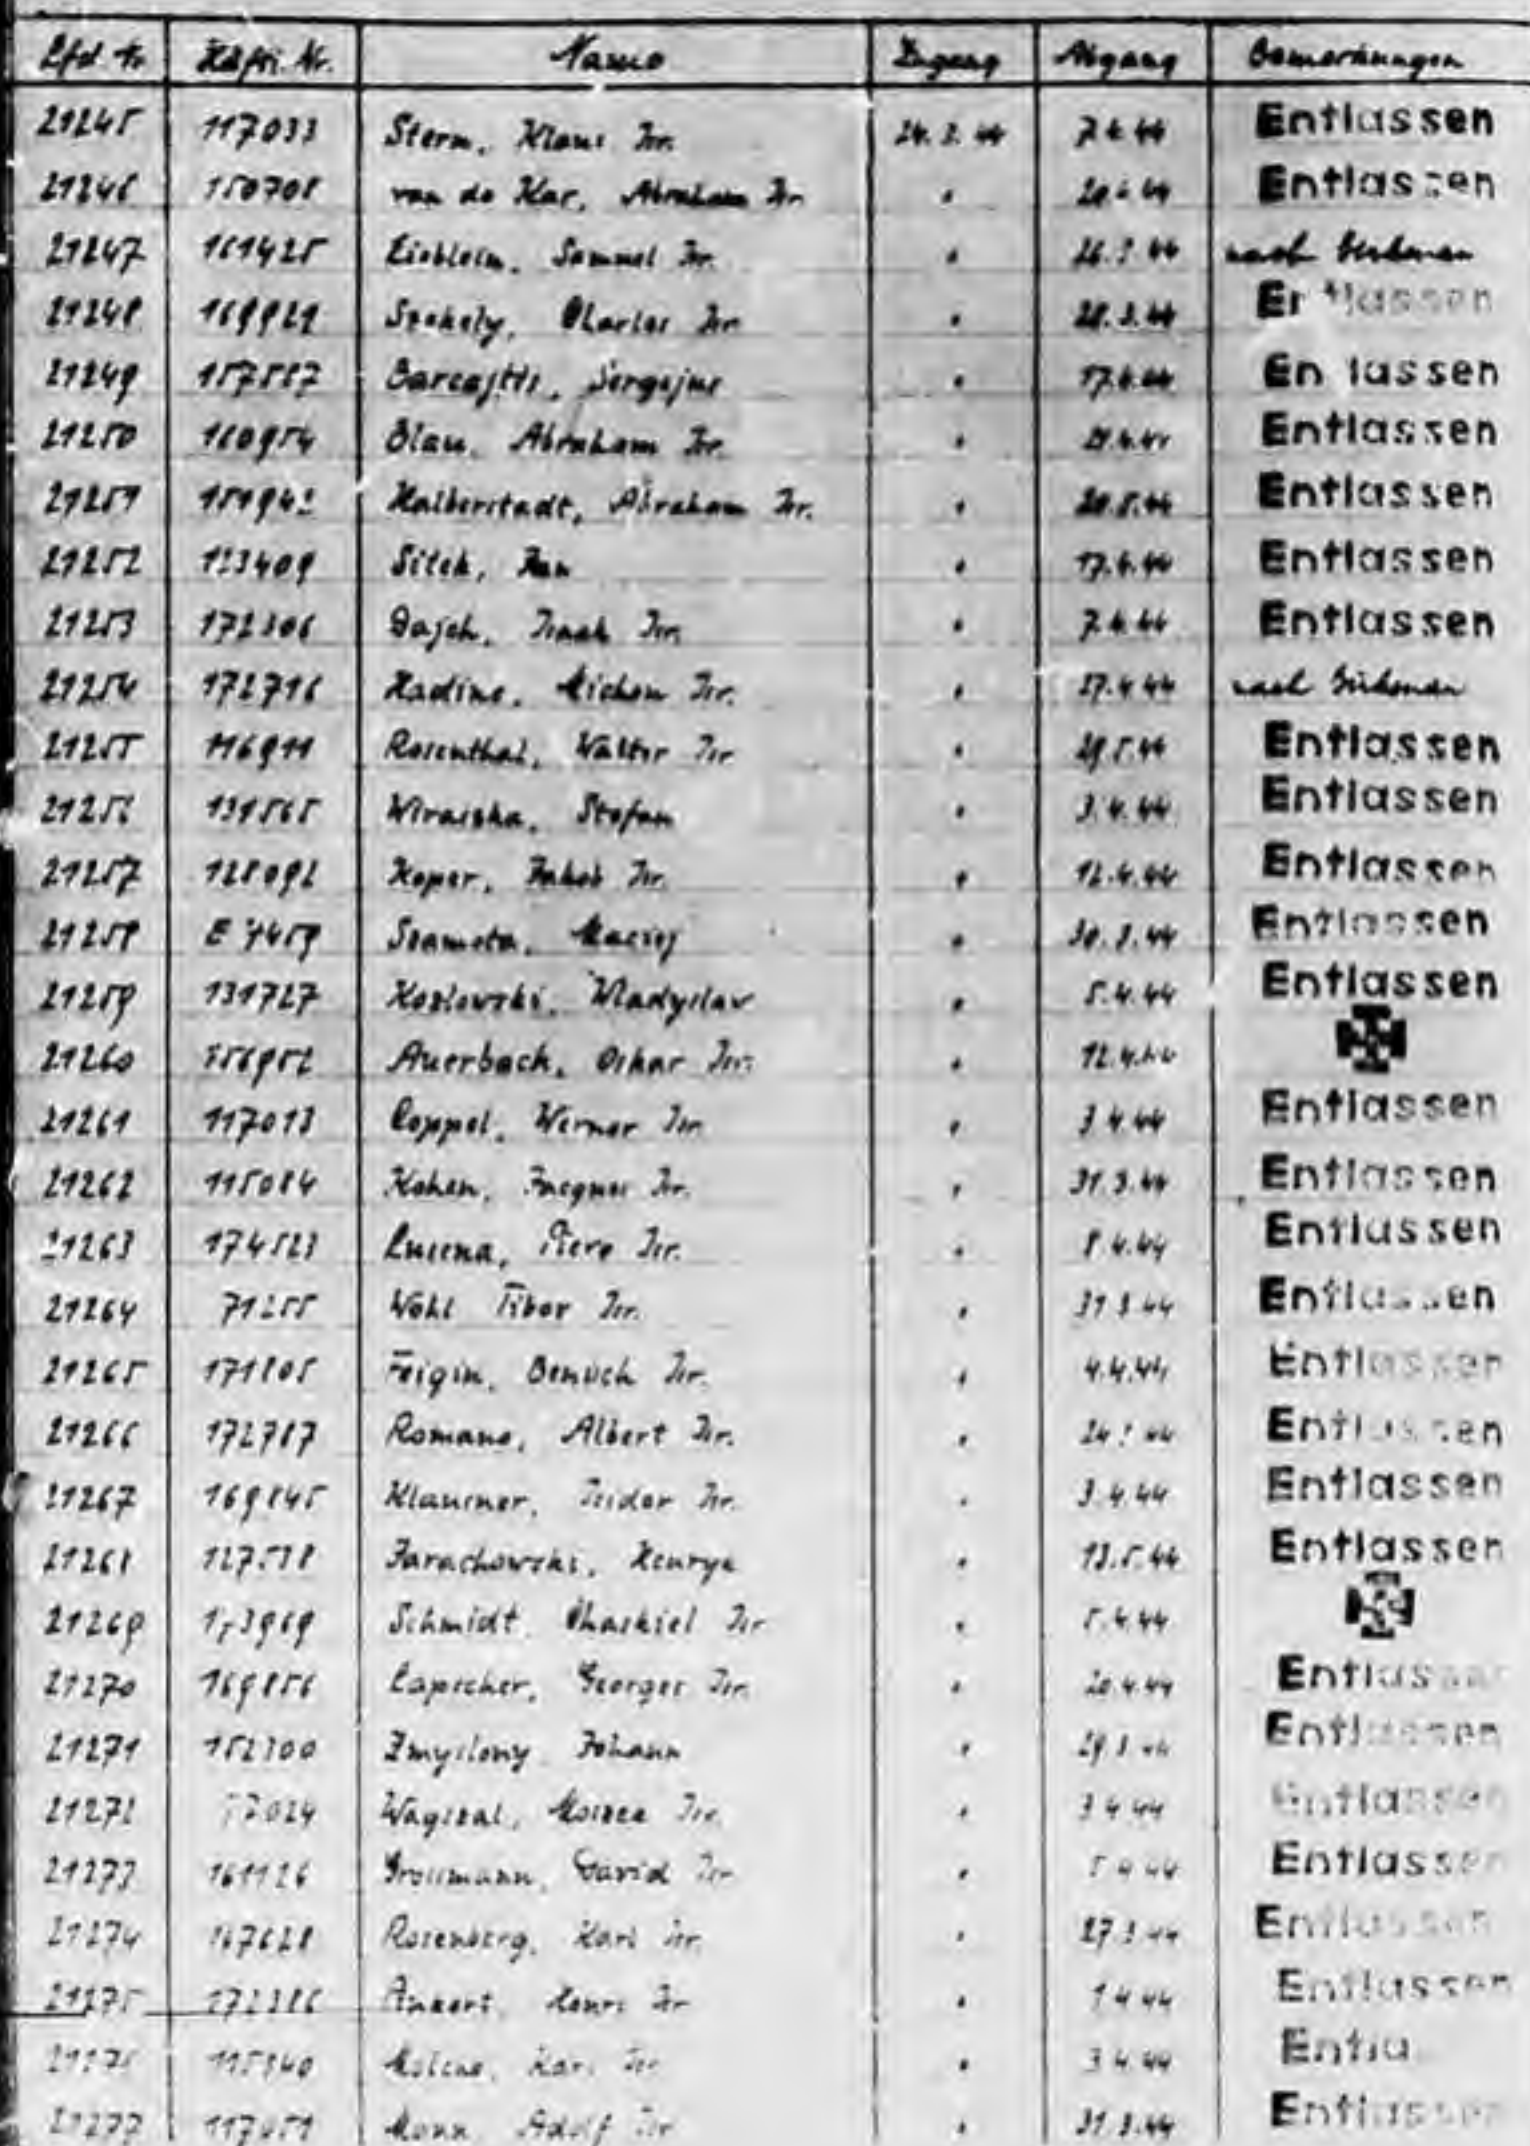 Lfd. Nr. Häftl. Nr. Name Zugang Abgang Bemerkungen
21245 117033 Stern, Klaus Isr. 24.3.44 7.4.44 Entlassen
21246 150708 van de Kar, Abraham Isr. " Entlassen
21247 161425 Samuel Isr. " nach Birkenau
21248 169929 Szekely, Charles Isr. " 28.3.44 Entlassen
21249 157587 Sergejus " 17.4.44 Entlassen
21250 160954 Blau, Abraham Isr. " Entlassen
21251 Halberstadt, Abraham Isr. " 20.5.44 Entlassen
21252 123409 Sitek, Jan " 17.4.44 Entlassen
21253 172306 Dajch, Isr. " 7.4.44 Entlassen
21254 172716 Isr. " 27.4.44 nach Birkenau
21255 116911 Rosenthal, Walter Isr. " 29.5.44 Entlassen
21256 131565 Stefan " 3.4.44 Entlassen
21257 128092 Koper, Jakob Isr. " 12.4.44 Entlassen
21258 Szamota, Maciej " 30.3.44 Entlassen
21259 131727 Koslowski, Wladyslaw " 5.4.44 Entlassen
21260 Auerbach, Oskar Isr. " 12.4.44
21261 117013 Coppel, Werner Isr. " 3.4.44 Entlassen
21262 115084 Kohen, Jacques Isr. " 31.3.44 Entlassen
21263 174523 Lucena, Piero Isr. " 8.4.44 Entlassen
21264 71255 Wohl Tibor Isr. " 31.3.44 Entlassen
21265 171805 Feigin, Benuch Isr. " 4.4.44 Entlassen
21266 172787 Romano, Albert Isr. " Entlassen
21267 169845 Klausner, Isidor Isr. " 3.4.44 Entlassen
21268 127538 Henryk " 13.5.44 Entlassen
21269 Schmidt, Chaskiel Isr. " 5.4.44
21270 169856 Lapscher, Georges Isr. " 20.4.44 Entlassen
21271 152300 Zmyslony, Johann " 29.3.44 Entlassen
21272 Isr. " 3.4.44 Entlassen
21273 161126 Grossmann, David Isr. " 5.4.44 Entlassen
21274 167628 Rosenberg, Karl Isr. " 27.3.44 Entlassen
21275 Henri Isr. " 1.4.44 Entlassen
21276 115340 Isr. " 3.4.44 Entla
21277 117051 Adolf Isr. " 31.3.44 Entlassen